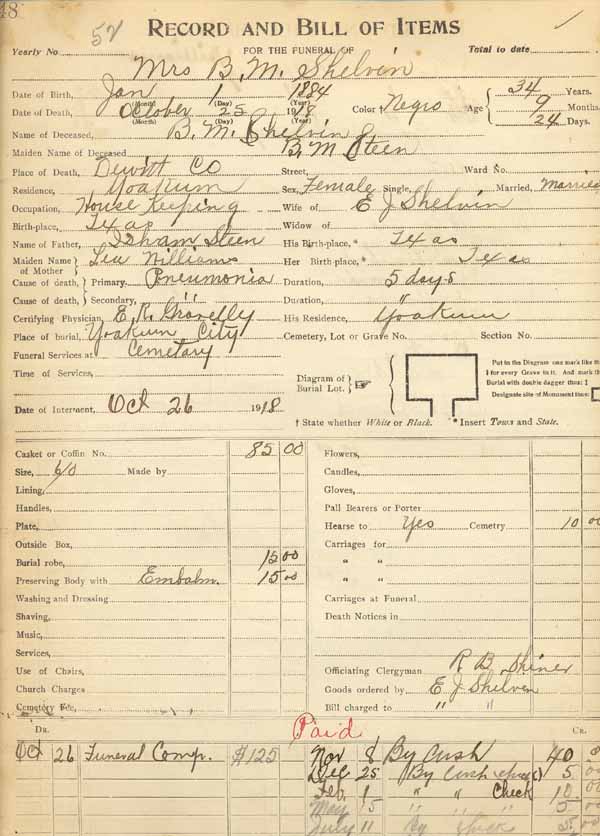 48
52
RECORD AND BILL OF ITEMS
Yearly No. FOR THE FUNERAL OF Total to date
Mrs B. M. Shelvin
Date of Birth, Jan 1 1884 34 Years.
(Month) (Day) (Year)
Date of Death, October 25 1918 Color, Negro Age 9 Months.
(Month) (Day) (Year) 24 Days.
Name of Deceased, B. M. Shelvin
Maiden Name of Deceased B. M Steen
Place of Death, Dewitt Co Street, Ward No.
Residence, Yoakum Sex, Female Single, Married, Married
Occupation, House Keeping Wife of E J Shelvin
Birth-place, Texas Widow of
Name of Father, Isham Steen His Birth-place,* Texas
Maiden Name of Mother Williams Her Birth-place,* Texas
Cause of death, Primary. Pneumonia Duration, 5 days
Cause of death, Secondary, " Duration, "
Certifying Physician, E. R. His Residence, Yoakum
Place of burial, Yoakum City Cemetery, Lot or Grave No. Section No.
Funeral Services at Cemetary
Time of Services,
Diagram of Burial Lot.
Put in the Diagram one mark like th
for every Grave in it. And mark th
Burial with double dagger thus: ‡
Designate site of Monument thus:
Date of Interment, Oct 26 1918
† State whether White or Black. * Insert Town and State.
Casket or Coffin No. 85 00 Flowers,
Size, 6/0 Made by Candles,
Lining, Gloves,
Handles, Pall Bearers or Porter
Plate, Hearse to Yes Cemetry 10 00
Outside Box, Carriages for
Burial robe, 15 00 " "
Preserving Body with Embalm. 15 00 " "
Washing and Dressing Carriages at Funeral
Shaving, Death Notices in
Music,
Services,
Use of Chairs, Officiating Clergyman R. B. Shiner
Church Charges Goods ordered by E J Shelvin
Cemetery Fee, Bill charged to " "
DR. Paid CR.
Oct 26 Funeral Comp. $125 Nov 8 By Cash 40
Dec 25 By Cash check 5
Feb 1 " " Check 10
May 15 " " " 5
July 11 By Check 5